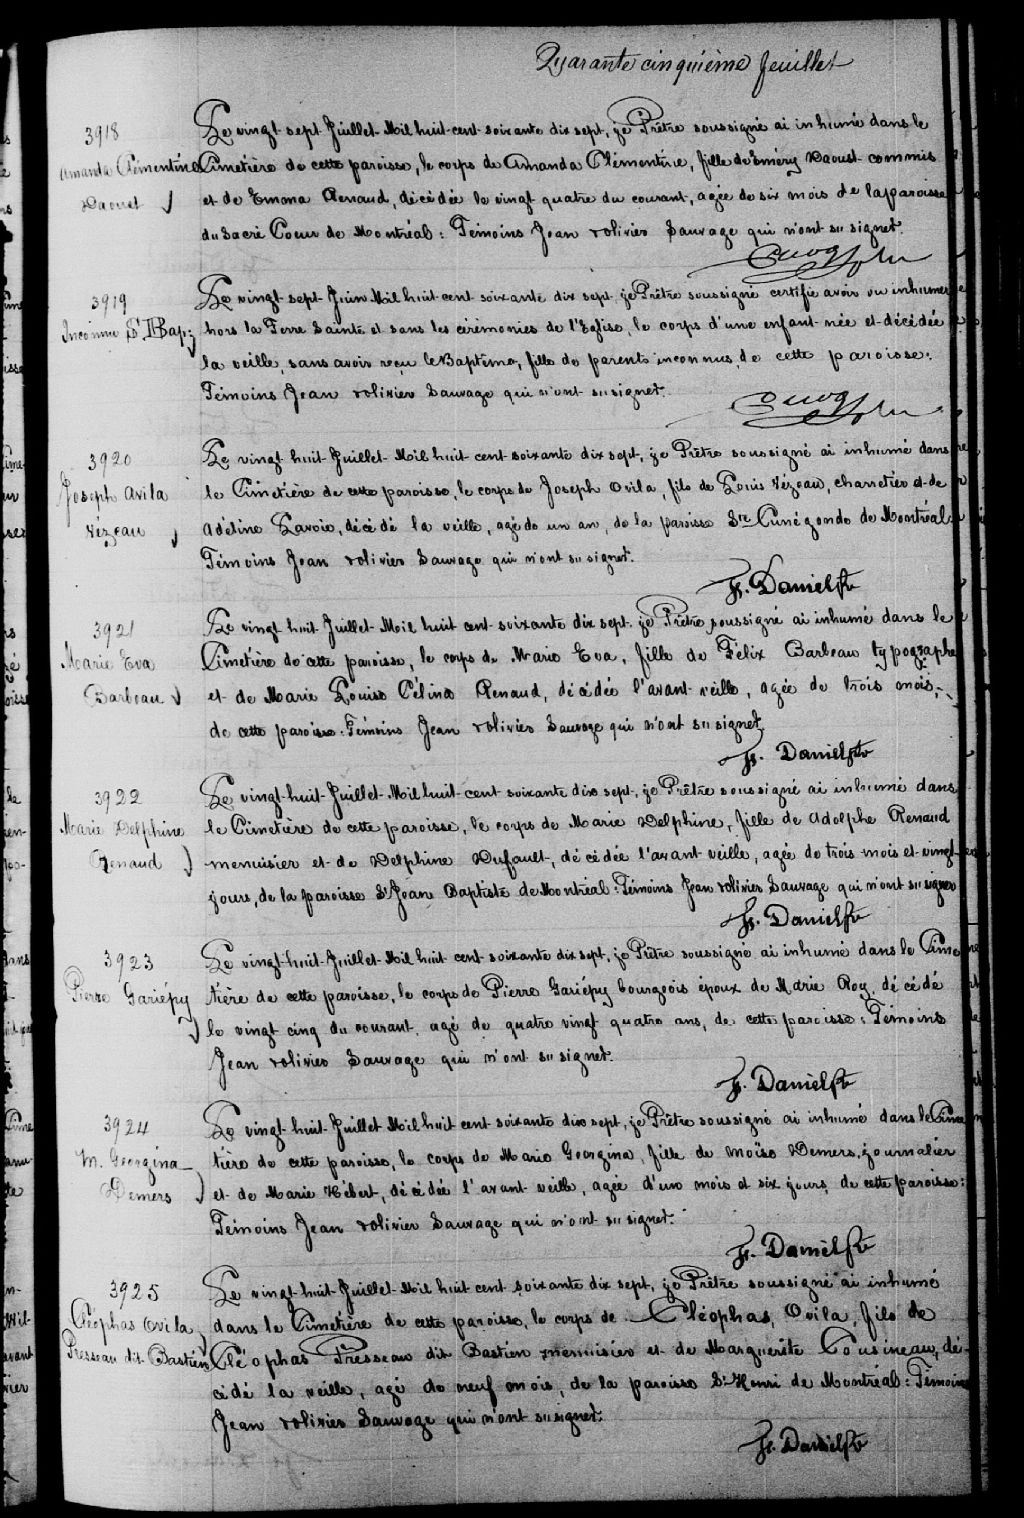 Quarante cinquième feuillet
3918
Amanda Clémentine
Daoust
Le vingt sept Juillet Mil huit cent soixante dix sept, je Prêtre soussigné ai inhumé dans le
Cimetière de cette paroisse, le corps de Amanda Clémentine, fille de Eméry Daoust commis
et de Emma Renaud, décédée le vingt quatre du courant, agée de six mois de la paroisse
du Sacré Coeur de Montréal : Témoins Jean & Olivier Sauvage qui n'ont su signer.
3919
Inconnue St. J. Bap.
Le vingt sept Juin Mil huit cent soixante dix sept, je Prêtre soussigné certifie avoir vu inhumer
hors la Terre Sainte et sans les cérémonies de l'Eglise, le corps d'une enfant née et décédée
la veille, sans avoir reçu le Baptême, fille de parents inconnus, de cette paroisse :
Témoins Jean & Olivier Sauvage qui n'ont su signer.
3920
Joseph Avila
Vézeau
Le vingt huit Juillet Mil huit cent soixante dix sept, je Prêtre soussigné ai inhumé dans
le Cimetière de cette paroisse, le corps de Joseph Ovila, fils de Louis Vézeau, charretier et de
Adéline Lavoie, décédé la veille, agé de un an, de la paroisse Ste Cunégonde de Montréal
Témoins Jean & Olivier Sauvage qui n'ont su signer.
Fs. Daniel Ptr
3921
Marie Eva
Barbeau
Le vingt huit Juillet Mil huit cent soixante dix sept, je Prêtre soussigné ai inhumé dans le
Cimetière de cette paroisse, le corps de Marie Eva, fille de Félix Barbeau typographe
et de Marie Louise Célina Renaud, décédée l'avant veille, agée de trois mois,
de cette paroisse. Témoins Jean & Olivier Sauvage qui n'ont su signer.
Fs. Daniel Ptr
3922
Marie Delphine
Renaud
Le vingt huit Juillet Mil huit cent soixante dix sept, je Prêtre soussigné ai inhumé dans
le Cimetière de cette paroisse, le corps de Marie Delphine, fille de Adolphe Renaud
menuisier et de Delphine Dufault, décédée l'avant veille, agée de trois mois et vingt
jours, de la paroisse St Jean Baptiste de Montréal : Témoins Jean & Olivier Sauvage qui n'ont su signer
Fs. Daniel Ptr
3923
Pierre Gariépy
Le vingt huit Juillet Mil huit cent soixante dix sept, je Prêtre soussigné ai inhumé dans le Cime
tière de cette paroisse, le corps de Pierre Gariépy bourgeois époux de Marie Roy, décédé
le vingt cinq du courant, agé de quatre vingt quatre ans, de cette paroisse : Témoins
Jean & Olivier Sauvage qui n'ont su signer.
Fs. Daniel Ptr
3924
M. Georgina
Demers
Le vingt huit Juillet Mil huit cent soixante dix sept, je Prêtre soussigné ai inhumé dans le Cime
tière de cette paroisse, le corps de Marie Georgina, fille de Moïse Demers, journalier
et de Marie Hébert, décédée l'avant veille, agée d'un mois et six jours, de cette paroisse :
Témoins Jean & Olivier Sauvage qui n'ont su signer.
Fs. Daniel Ptr
3925
Cléophas Ovila
Presseau dit Bastien
Le vingt huit Juillet Mil huit cent soixante dix sept, je Prêtre soussigné ai inhumé
dans le Cimetière de cette paroisse, le corps de Cléophas, Ovila, fils de
Cléophas Presseau dit Bastien menuisier et de Marguerite Cousineau, dé-
cédé la veille, agé de neuf mois, de la paroisse St Henri de Montréal : Témoins
Jean & Olivier Sauvage qui n'ont su signer.
Fs. Daniel Ptr